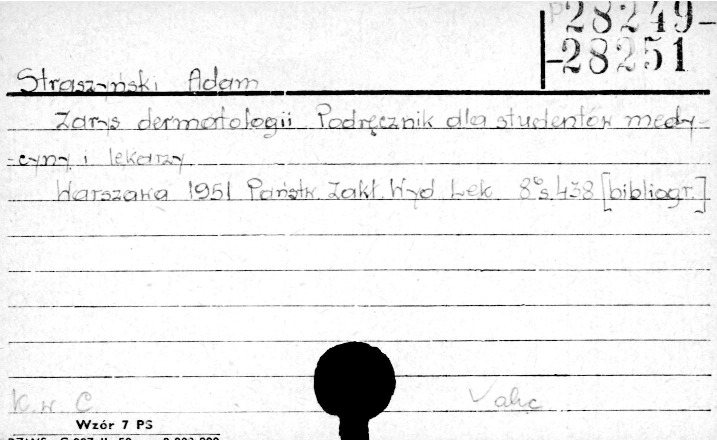 28249-
-28251
Straszyński Adam
Zarys dermatologii Podręcznik dla studentów medy-
-cyny i lekarzy
Warszawa 1951 Państw. Zakł. Wyd. Lek. 8° s. 438 [bibliogr.]
K. w C.
Wzór 7 PS